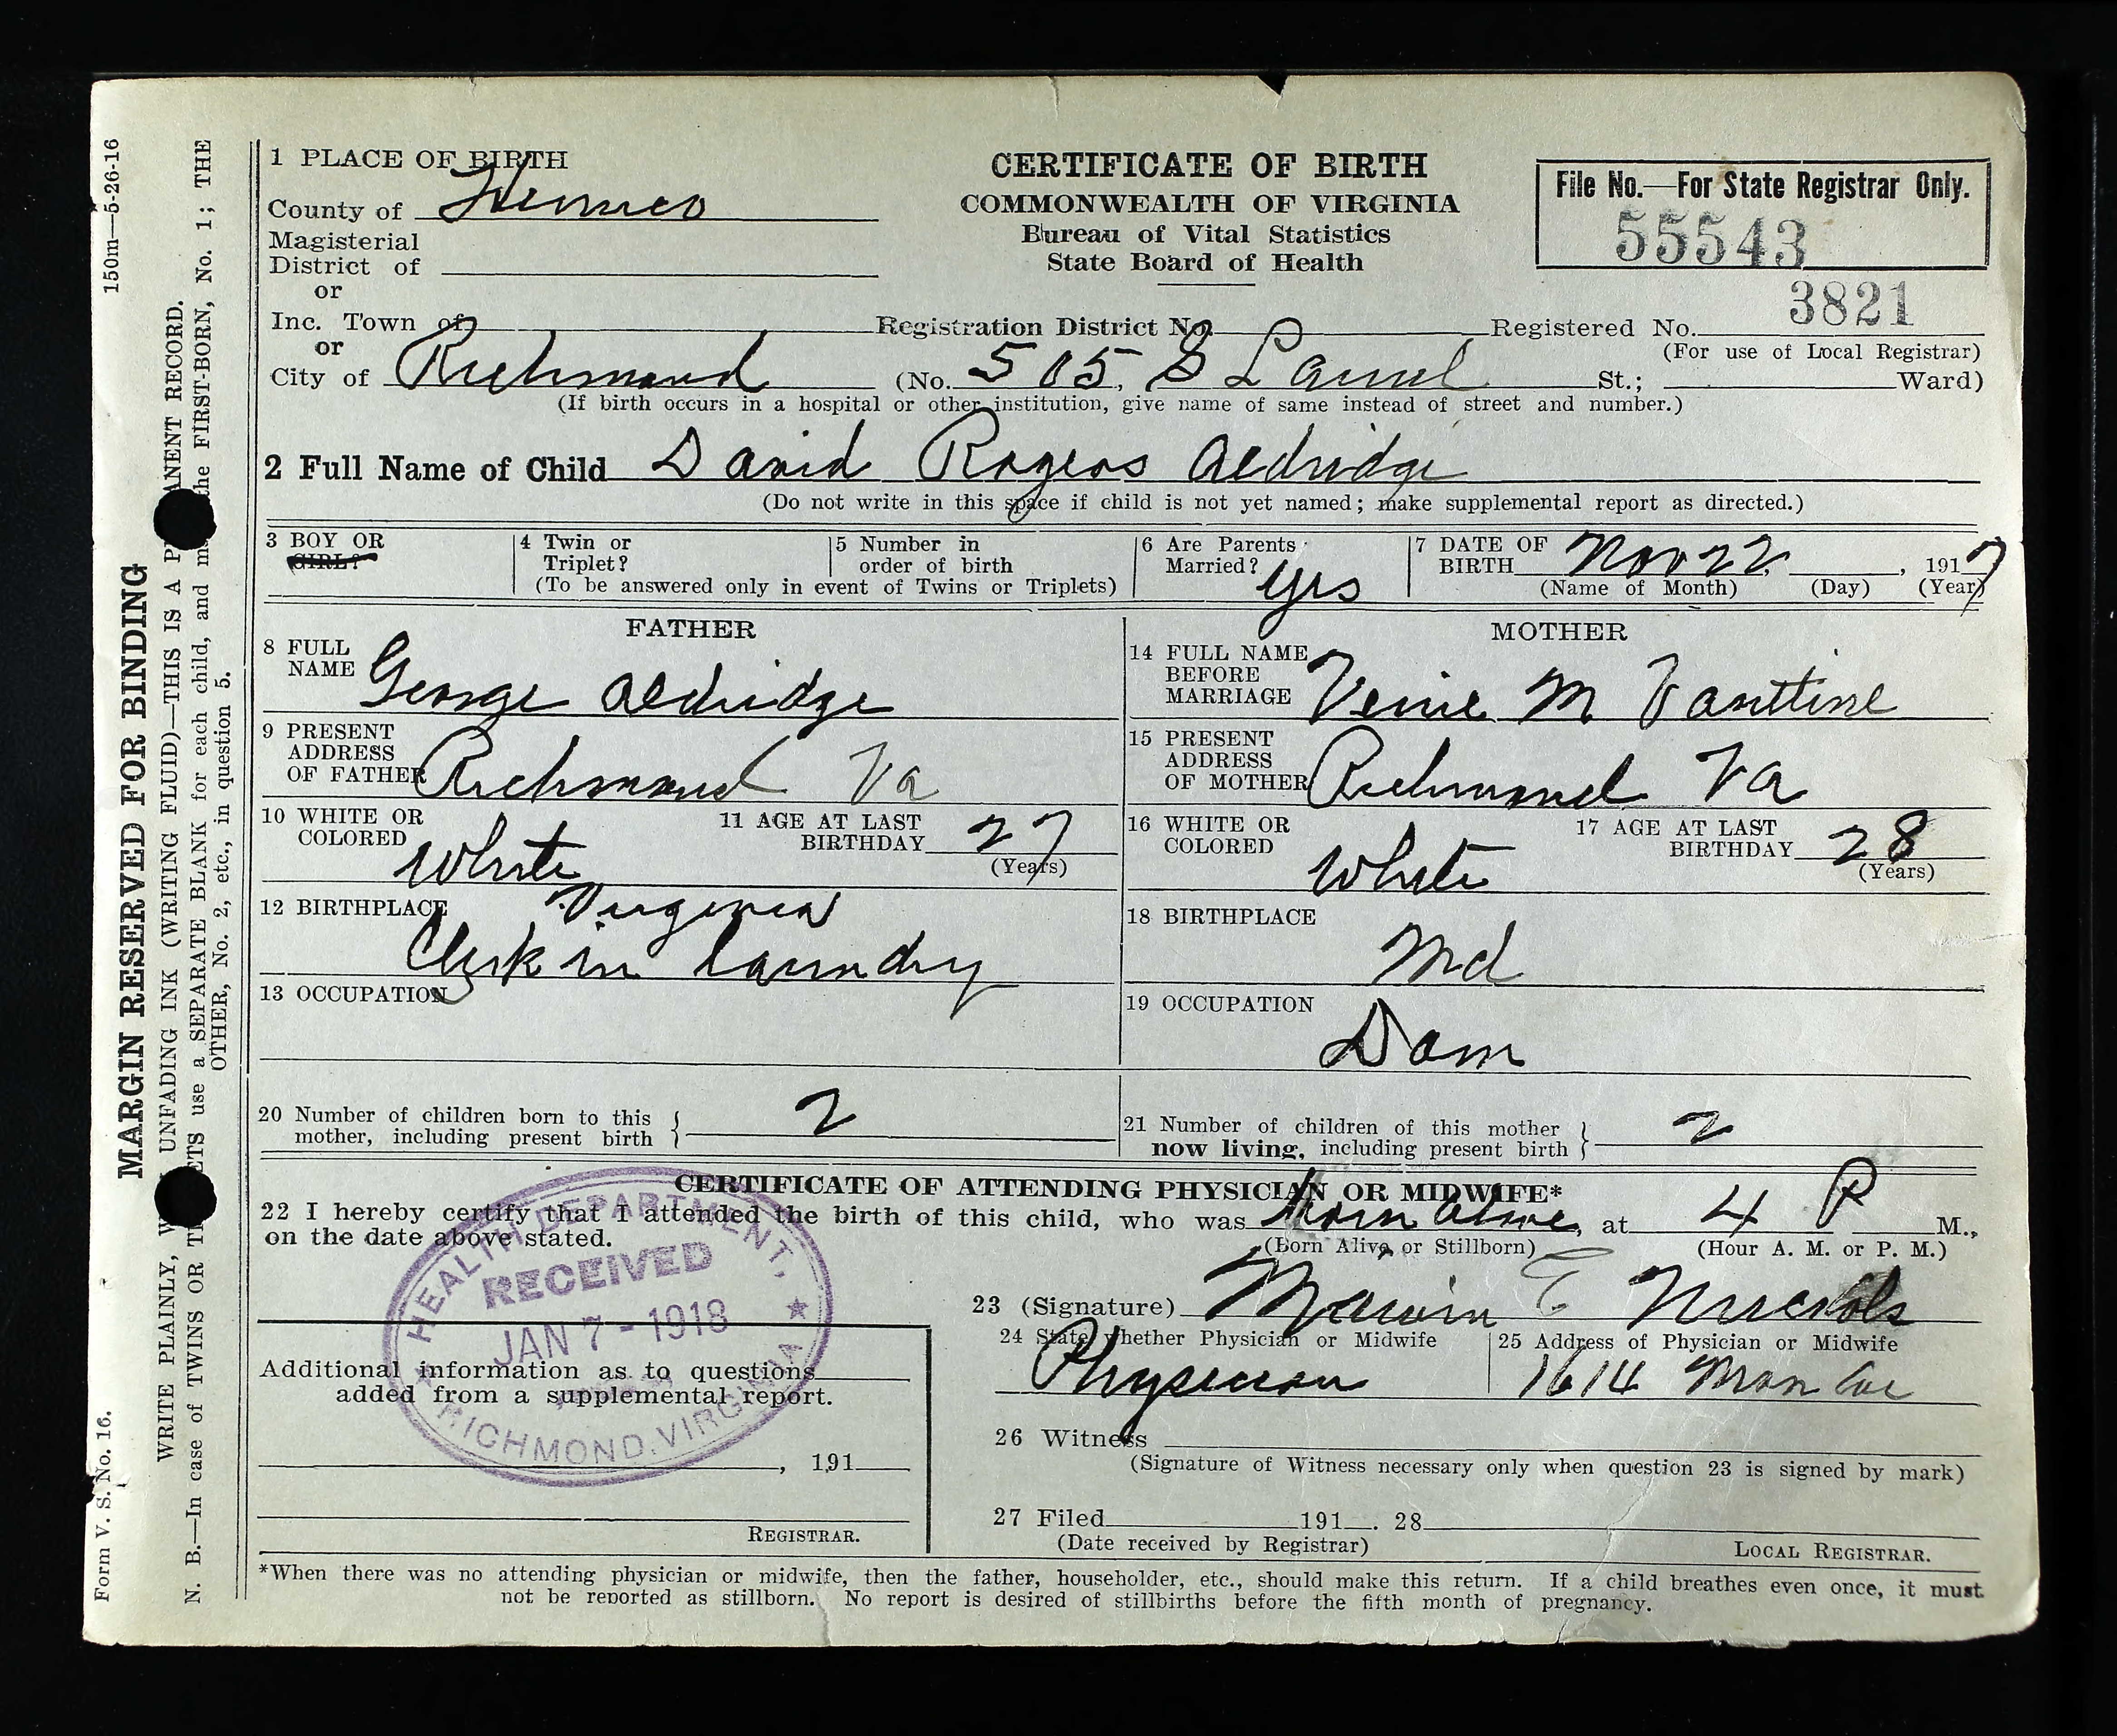 1 PLACE OF BIRTH
County of Henrico
Magisterial
District of
or
Inc. Town of
or
City of Richmond
CERTIFICATE OF BIRTH
COMMONWEALTH OF VIRGINIA
Bureau of Vital Statistics
State Board of Health
File No.—For State Registrar Only.
55543
3821
Registration District No. Registered No.
(For use of Local Registrar)
(No. 505, S Laurel St.; Ward)
(If birth occurs in a hospital or other institution, give name of same instead of street and number.)
2 Full Name of Child David Rogers Aldridge
(Do not write in this space if child is not yet named; make supplemental report as directed.)
3 BOY OR
GIRL?
4 Twin or
Triplet?
5 Number in
order of birth
(To be answered only in event of Twins or Triplets)
6 Are Parents
Married? yes
7 DATE OF
BIRTH Nov 22, , 1917
(Name of Month) (Day) (Year)
FATHER
8 FULL
NAME George Aldridge
9 PRESENT
ADDRESS
OF FATHER Richmond Va
10 WHITE OR
COLORED White
11 AGE AT LAST
BIRTHDAY 27
(Years)
12 BIRTHPLACE Virginia
Clerk in laundry
13 OCCUPATION
MOTHER
14 FULL NAME
BEFORE
MARRIAGE M
15 PRESENT
ADDRESS
OF MOTHER Richmond Va
16 WHITE OR
COLORED White
17 AGE AT LAST
BIRTHDAY 28
(Years)
18 BIRTHPLACE
Md
19 OCCUPATION
Dom
20 Number of children born to this
mother, including present birth } 2
21 Number of children of this mother
now living, including present birth } 2
CERTIFICATE OF ATTENDING PHYSICIAN OR MIDWIFE*
22 I hereby certify that I attended the birth of this child, who was born alive, at 4 P M.,
on the date above stated.
(Born Alive or Stillborn) (Hour A. M. or P. M.)
HEALTH DEPARTMENT,
RECEIVED
JAN 7 - 1918
RICHMOND, VIRGINIA
Additional information as to questions
added from a supplemental report.
, 191
REGISTRAR.
23 (Signature) Nuckols
24 State whether Physician or Midwife
Physician
25 Address of Physician or Midwife
1614
26 Witness
(Signature of Witness necessary only when question 23 is signed by mark)
27 Filed 191 . 28
(Date received by Registrar)
LOCAL REGISTRAR.
*When there was no attending physician or midwife, then the father, householder, etc., should make this return. If a child breathes even once, it must
not be reported as stillborn. No report is desired of stillbirths before the fifth month of pregnancy.
Form V. S. No. 16. 150m—5-26-16
MARGIN RESERVED FOR BINDING
WRITE PLAINLY, UNFADING INK (WRITING FLUID)—THIS IS A RECORD.
N. B.—In case of TWINS OR use a SEPARATE BLANK for each child, and the FIRST-BORN, No. 1; THE
OTHER, No. 2, etc., in question 5.